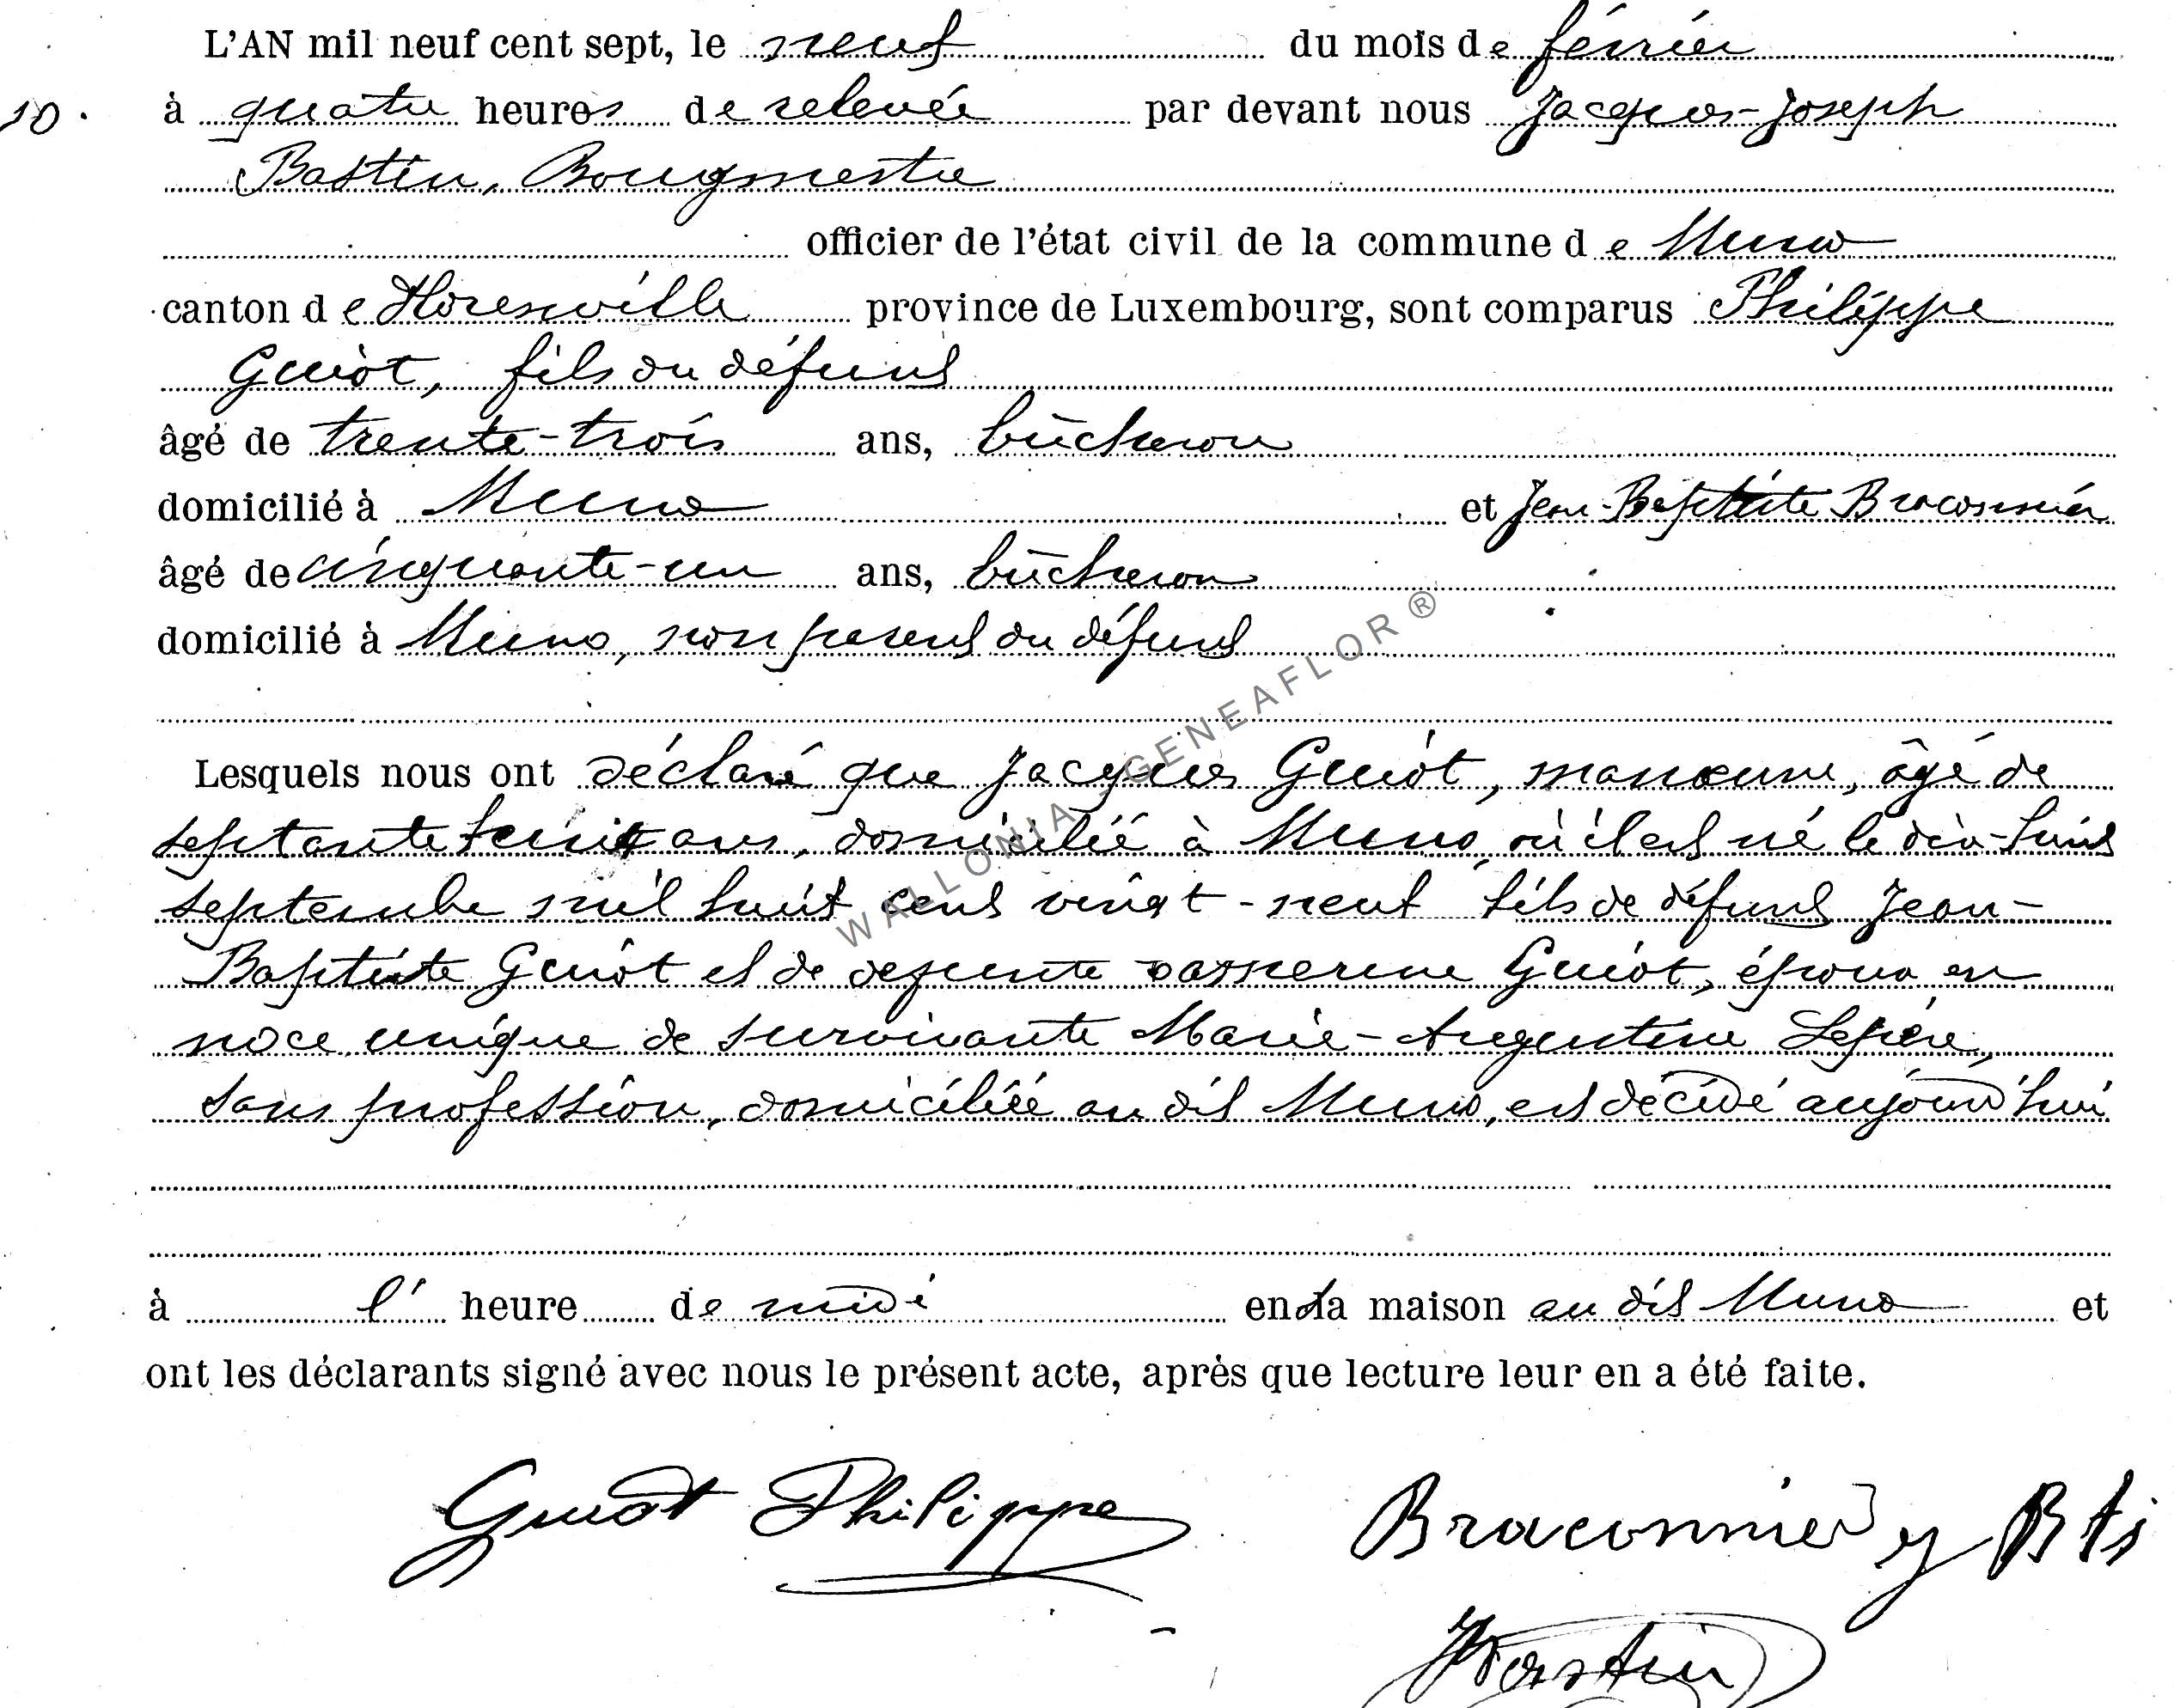 L'AN mil neuf cent sept, le neuf du mois de février
10. à quatre heures de relevée par devant nous Jacques-Joseph
Bastin, Bougmestre
officier de l'état civil de la commune de Muno
canton de Florenville province de Luxembourg, sont comparus Philippe
Guiot, fils du défunt
âgé de trente-trois ans, bûcheron
domicilié à Muno et Jean-Baptiste Braconnier
âgé de cinquante-un ans, bûcheron
domicilié à Muno, non parent du défunt
Lesquels nous ont déclaré que Jacques Guiot, manœuvre, âgé de
septante huit ans, domicilié à Muno, où il est né le dix-huit
septembre mil huit cent vingt-neuf fils de défunt Jean-
Baptiste Guiot et de defunte Guiot, époux en
noce unique de survivante Marie-Argentine Lepère,
sans profession, domiciliée au dit Muno, est décédé aujourd'hui
à l' heure de midi en sa maison au dit Muno et
ont les déclarants signé avec nous le présent acte, après que lecture leur en a été faite.
Guiot Philippe Braconnier J Bte
JBastin
WALLONIA - GENEAFLOR ®